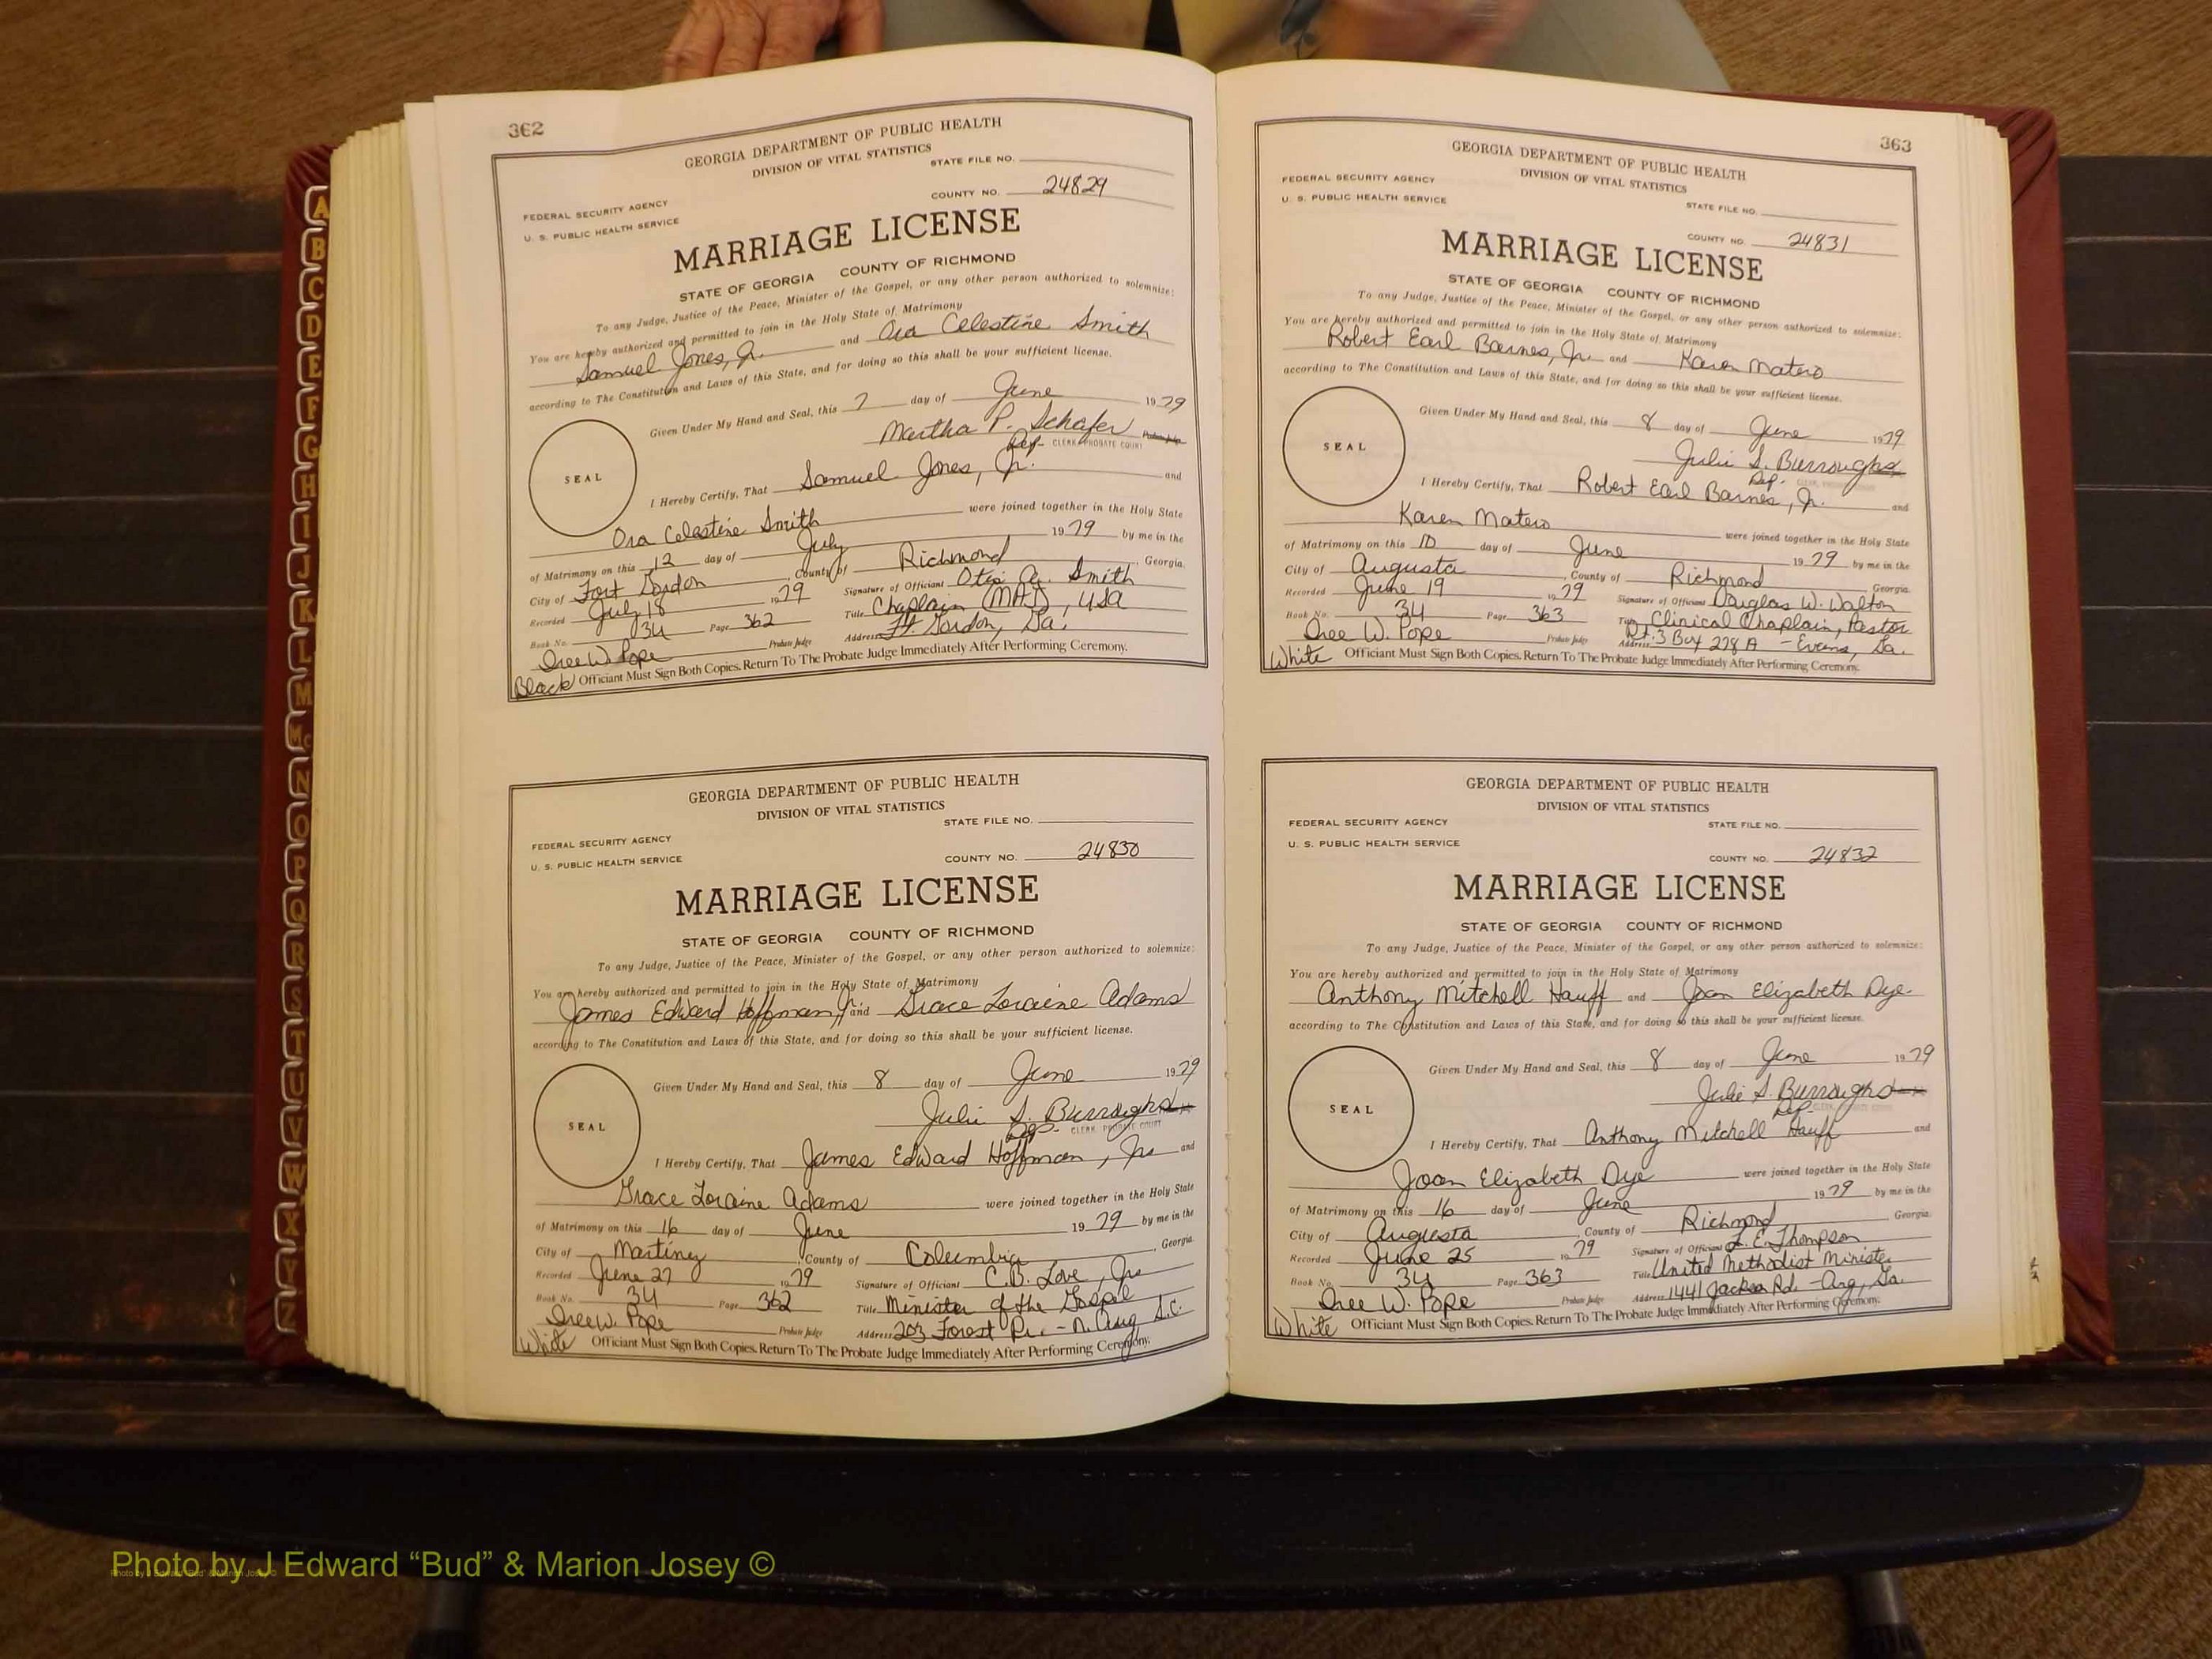 362
GEORGIA DEPARTMENT OF PUBLIC HEALTH
DIVISION OF VITAL STATISTICS
STATE FILE NO.
COUNTY NO. 24829
FEDERAL SECURITY AGENCY
U. S. PUBLIC HEALTH SERVICE
MARRIAGE LICENSE
STATE OF GEORGIA COUNTY OF RICHMOND
To any Judge, Justice of the Peace, Minister of the Gospel, or any other person authorized to solemnize:
You are hereby authorized and permitted to join in the Holy State of Matrimony
Samuel Jones, Jr. and Ora Celestine Smith
according to The Constitution and Laws of this State, and for doing so this shall be your sufficient license.
Given Under My Hand and Seal, this 7 day of June 1979
Martha P. Schafer
Dep. CLERK, PROBATE COURT
SEAL
I Hereby Certify, That Samuel Jones, Jr. and
Ora Celestine Smith were joined together in the Holy State
of Matrimony on this 12 day of July 1979 by me in the
City of Fort Gordon, County of Richmond, Georgia.
Recorded July 18 1979 Signature of Officiant Otis A. Smith
Book No. 34 Page 362 Title Chaplain (MAJ), USA
Iree W. Pope Probate Judge Address Ft. Gordon, Ga.
Black Officiant Must Sign Both Copies. Return To The Probate Judge Immediately After Performing Ceremony.
GEORGIA DEPARTMENT OF PUBLIC HEALTH
DIVISION OF VITAL STATISTICS
STATE FILE NO.
FEDERAL SECURITY AGENCY
U. S. PUBLIC HEALTH SERVICE
COUNTY NO. 24830
MARRIAGE LICENSE
STATE OF GEORGIA COUNTY OF RICHMOND
To any Judge, Justice of the Peace, Minister of the Gospel, or any other person authorized to solemnize:
You are hereby authorized and permitted to join in the Holy State of Matrimony
James Edward Hoffman, Jr. and Grace Loraine Adams
according to The Constitution and Laws of this State, and for doing so this shall be your sufficient license.
Given Under My Hand and Seal, this 8 day of June 1979
Julie S. Burroughs
Dep. CLERK, PROBATE COURT
SEAL
I Hereby Certify, That James Edward Hoffman, Jr. and
Grace Loraine Adams were joined together in the Holy State
of Matrimony on this 16 day of June 1979 by me in the
City of Martinez, County of Columbia, Georgia.
Recorded June 27 1979 Signature of Officiant C.B. Love, Jr.
Book No. 34 Page 362 Title Minister of the Gospel
Iree W. Pope Probate Judge Address 203 Forest Dr. - N. Aug S.C.
White Officiant Must Sign Both Copies. Return To The Probate Judge Immediately After Performing Ceremony.
363
GEORGIA DEPARTMENT OF PUBLIC HEALTH
DIVISION OF VITAL STATISTICS
FEDERAL SECURITY AGENCY
U. S. PUBLIC HEALTH SERVICE
STATE FILE NO.
COUNTY NO. 24831
MARRIAGE LICENSE
STATE OF GEORGIA COUNTY OF RICHMOND
To any Judge, Justice of the Peace, Minister of the Gospel, or any other person authorized to solemnize:
You are hereby authorized and permitted to join in the Holy State of Matrimony
Robert Earl Barnes, Jr. and Karen Matero
according to The Constitution and Laws of this State, and for doing so this shall be your sufficient license.
Given Under My Hand and Seal, this 8 day of June 1979
Julie S. Burroughs
Dep. CLERK, PROBATE COURT
SEAL
I Hereby Certify, That Robert Earl Barnes, Jr. and
Karen Matero were joined together in the Holy State
of Matrimony on this 10 day of June 1979 by me in the
City of Augusta, County of Richmond Georgia.
Recorded June 19 1979 Signature of Officiant Douglas W. Walton
Book No. 34 Page 363 Title Clinical Chaplain, Pastor
Iree W. Pope Probate Judge Address Rt. 3 Box 228 A - Evans, Ga.
White Officiant Must Sign Both Copies. Return To The Probate Judge Immediately After Performing Ceremony.
GEORGIA DEPARTMENT OF PUBLIC HEALTH
DIVISION OF VITAL STATISTICS
FEDERAL SECURITY AGENCY
STATE FILE NO.
U. S. PUBLIC HEALTH SERVICE
COUNTY NO. 24832
MARRIAGE LICENSE
STATE OF GEORGIA COUNTY OF RICHMOND
To any Judge, Justice of the Peace, Minister of the Gospel, or any other person authorized to solemnize:
You are hereby authorized and permitted to join in the Holy State of Matrimony
Anthony Mitchell Hauff and Joan Elizabeth Dye
according to The Constitution and Laws of this State, and for doing so this shall be your sufficient license.
Given Under My Hand and Seal, this 8 day of June 1979
Julie S. Burroughs
Dep. CLERK, PROBATE COURT
SEAL
I Hereby Certify, That Anthony Mitchell Hauff and
Joan Elizabeth Dye were joined together in the Holy State
of Matrimony on this 16 day of June 1979 by me in the
City of Augusta, County of Richmond Georgia.
Recorded June 25 1979 Signature of Officiant L. E. Thompson
Book No. 34 Page 363 Title United Methodist Minister
Iree W. Pope Probate Judge Address 1441 Jackson Rd. - Aug, Ga.
White Officiant Must Sign Both Copies. Return To The Probate Judge Immediately After Performing Ceremony.
A
B
C
D
E
F
G
H
I
J
K
L
M
Mc
N
O
P
Q
R
S
T
U
V
W
X
Y
Z
Photo by J Edward “Bud” & Marion Josey ©
Photo by J Edward “Bud” & Marion Josey ©